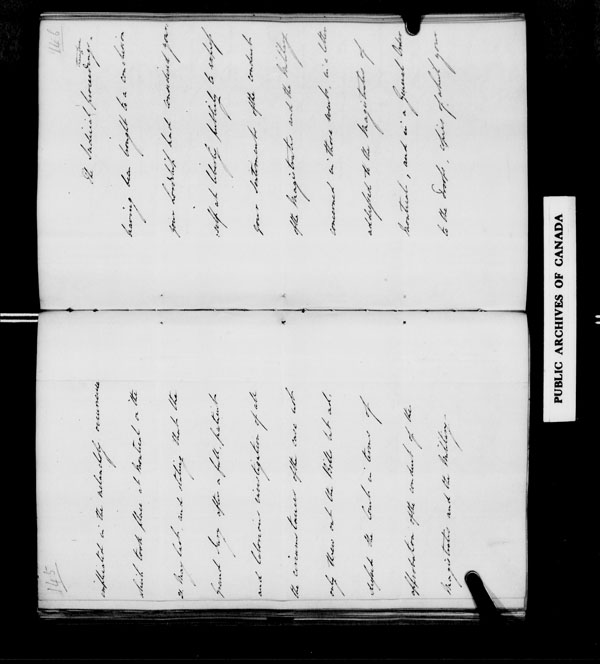 145
implicated in the melancholy occurrence
which took place at Montreal on the
21 May last and stating that the
Grand Jury after a full, patient
and laborious investigation of all
the circumstances of the case not
only threw out the Bills but ad-
the Court in terms of
approbation of the conduct of the
Magistrates and the Military.
146
The Judicial proceedings
having been brought to a conclusion
your Lordship had considered your-
self at liberty publicly to
your sentiments of the conduct
of the Magistrates and the Military
concerned in those events, in a letter
addressed to the Magistrates of
Montreal, and in a General Order
to the Troops, copies of which your
PUBLIC ARCHIVES OF CANADA